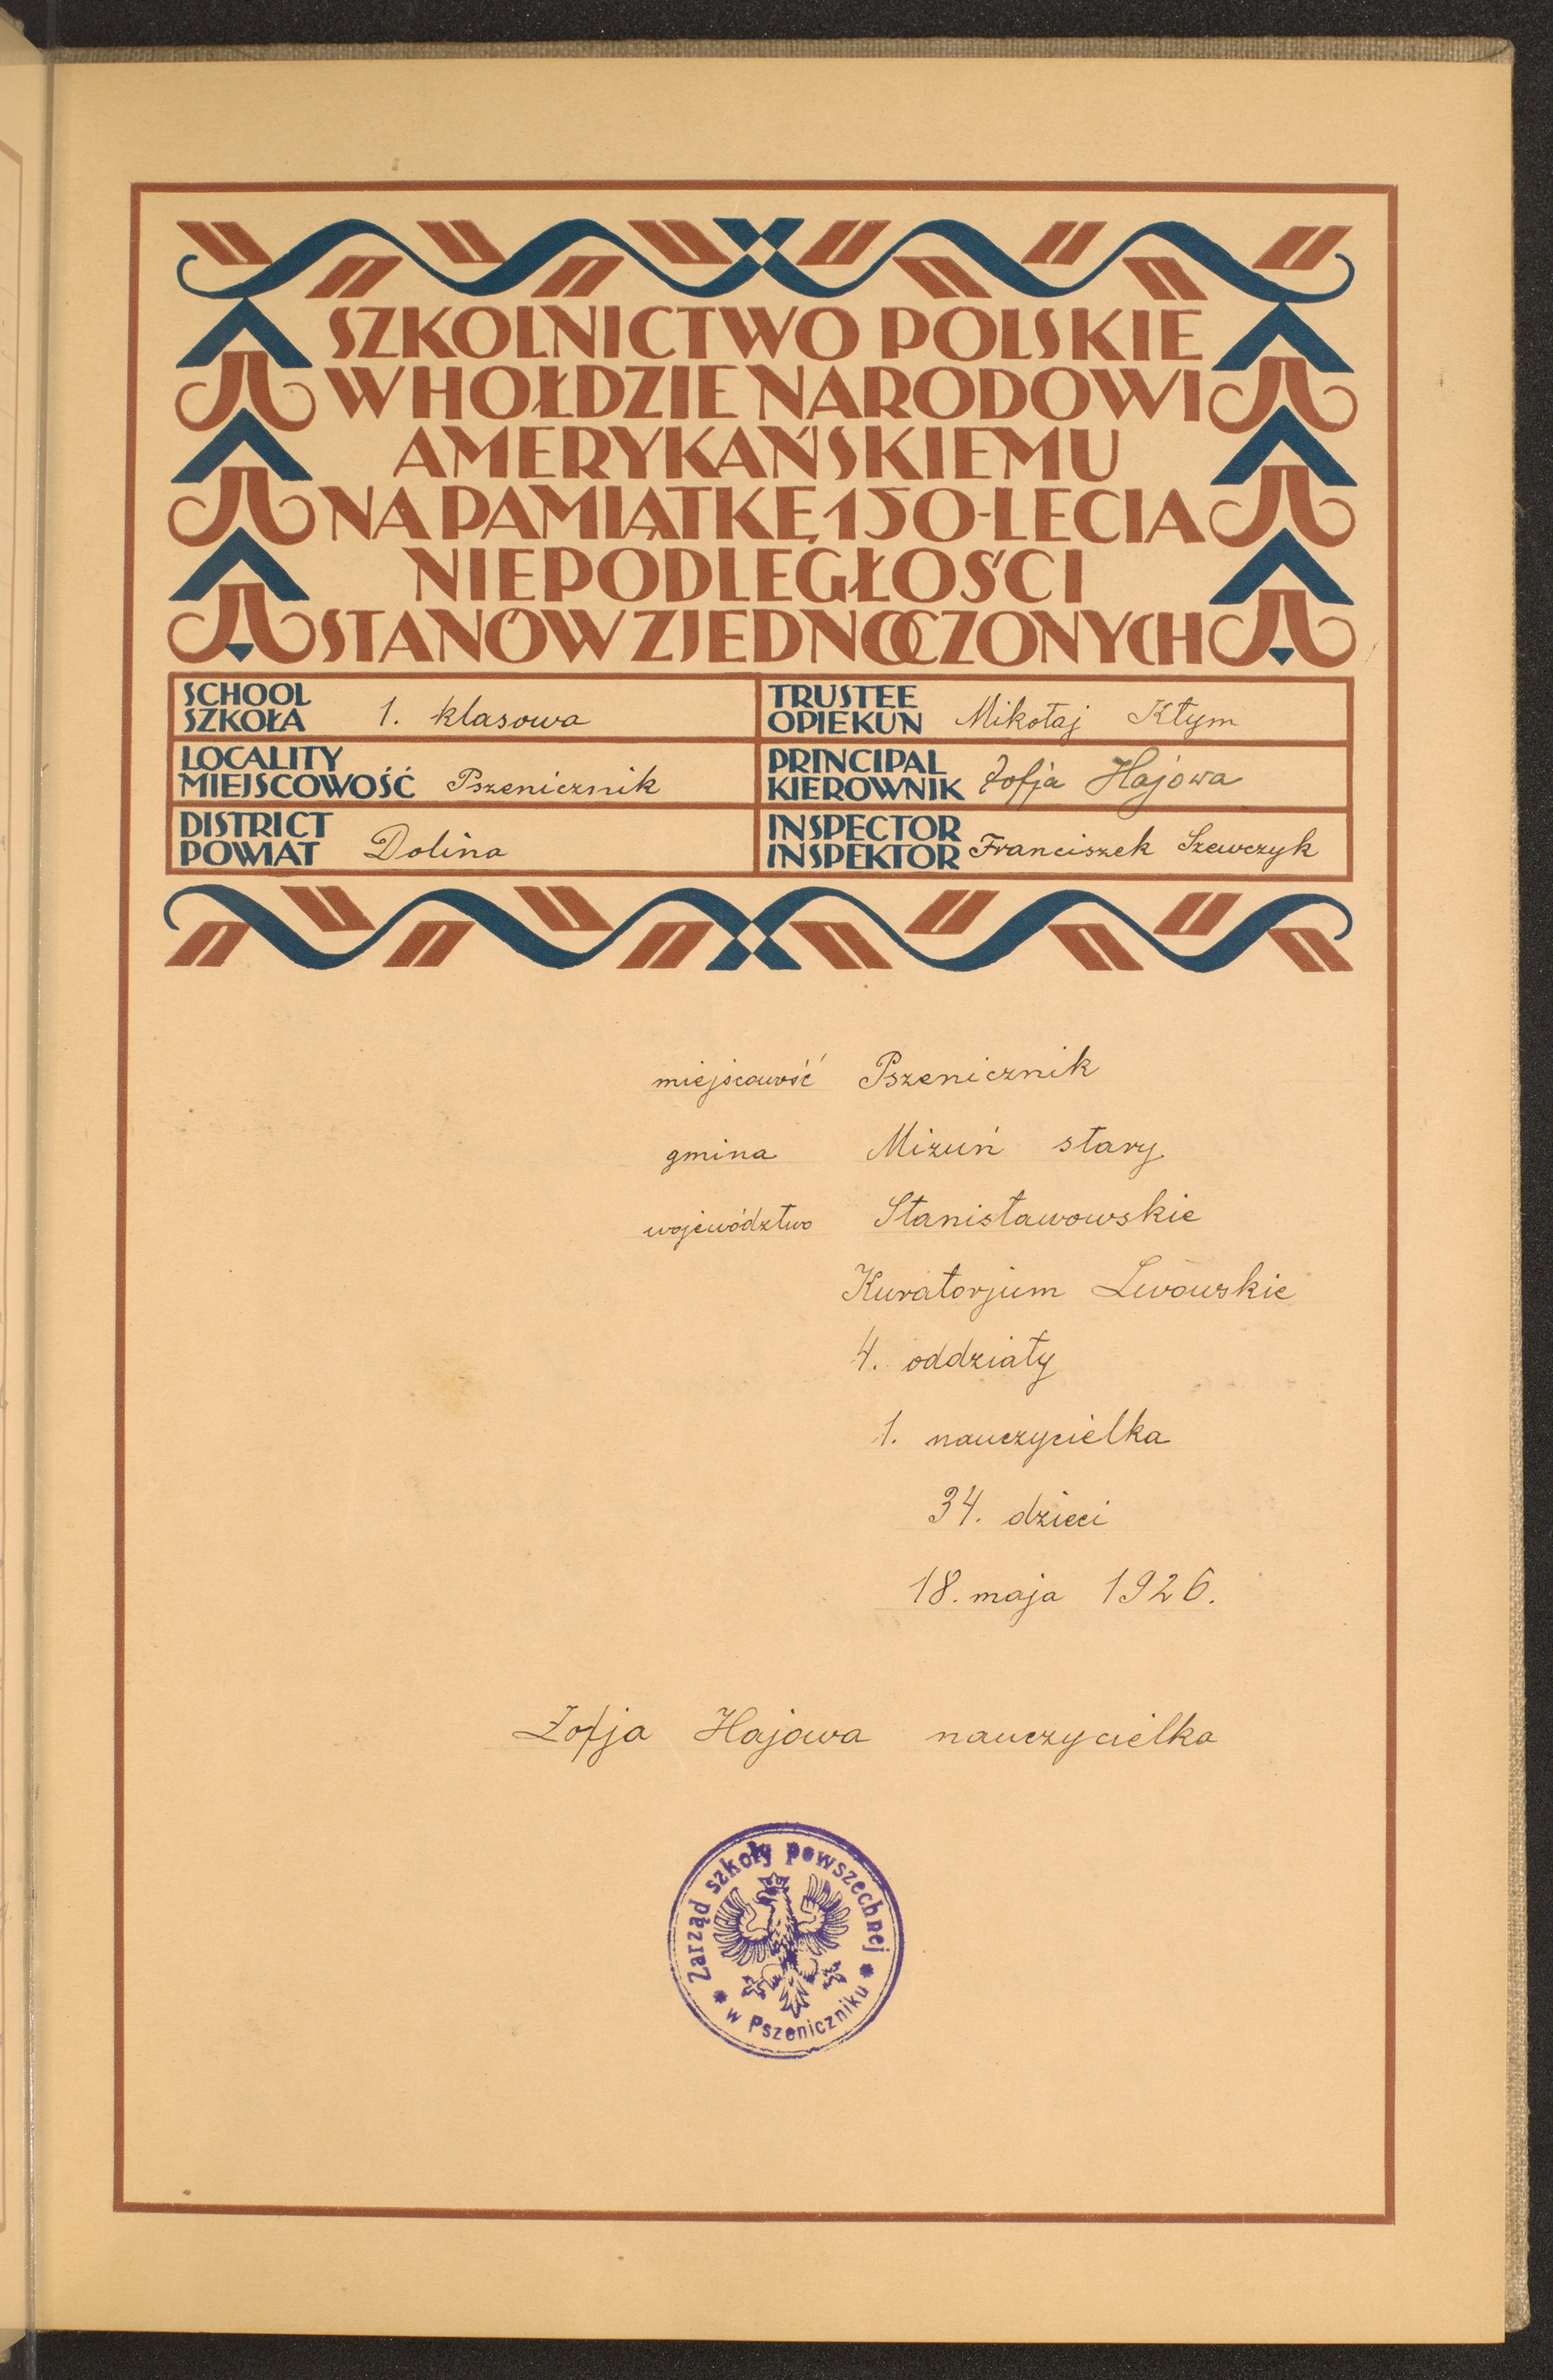 SZKOLNICTWO POLSKIE
W HOŁDZIE NARODOWI
AMERYKAŃSKIEMU
NA PAMIĄTKĘ 150-LECIA
NIEPODLEGŁOŚCI
STANÓW ZJEDNOCZONYCH
SCHOOL
SZKOŁA 1. klasowa
TRUSTEE
OPIEKUN Mikołaj Kłym
LOCALITY
MIEJSCOWOŚĆ Pszenicznik
PRINCIPAL
KIEROWNIK Zofja Hajowa
DISTRICT
POWIAT Dolina
INSPECTOR
INSPEKTOR Franciszek Szewczyk
miejscowość Pszenicznik
gmina Mizuń stary
województwo Stanisławowskie
Kuratorjum Lwowskie
4. oddziały
1. nauczycielka
34. dzieci
18. maja 1926.
Zofja Hajowa nauczycielka
Zarząd szkoły powszechnej
w Pszeniczniku